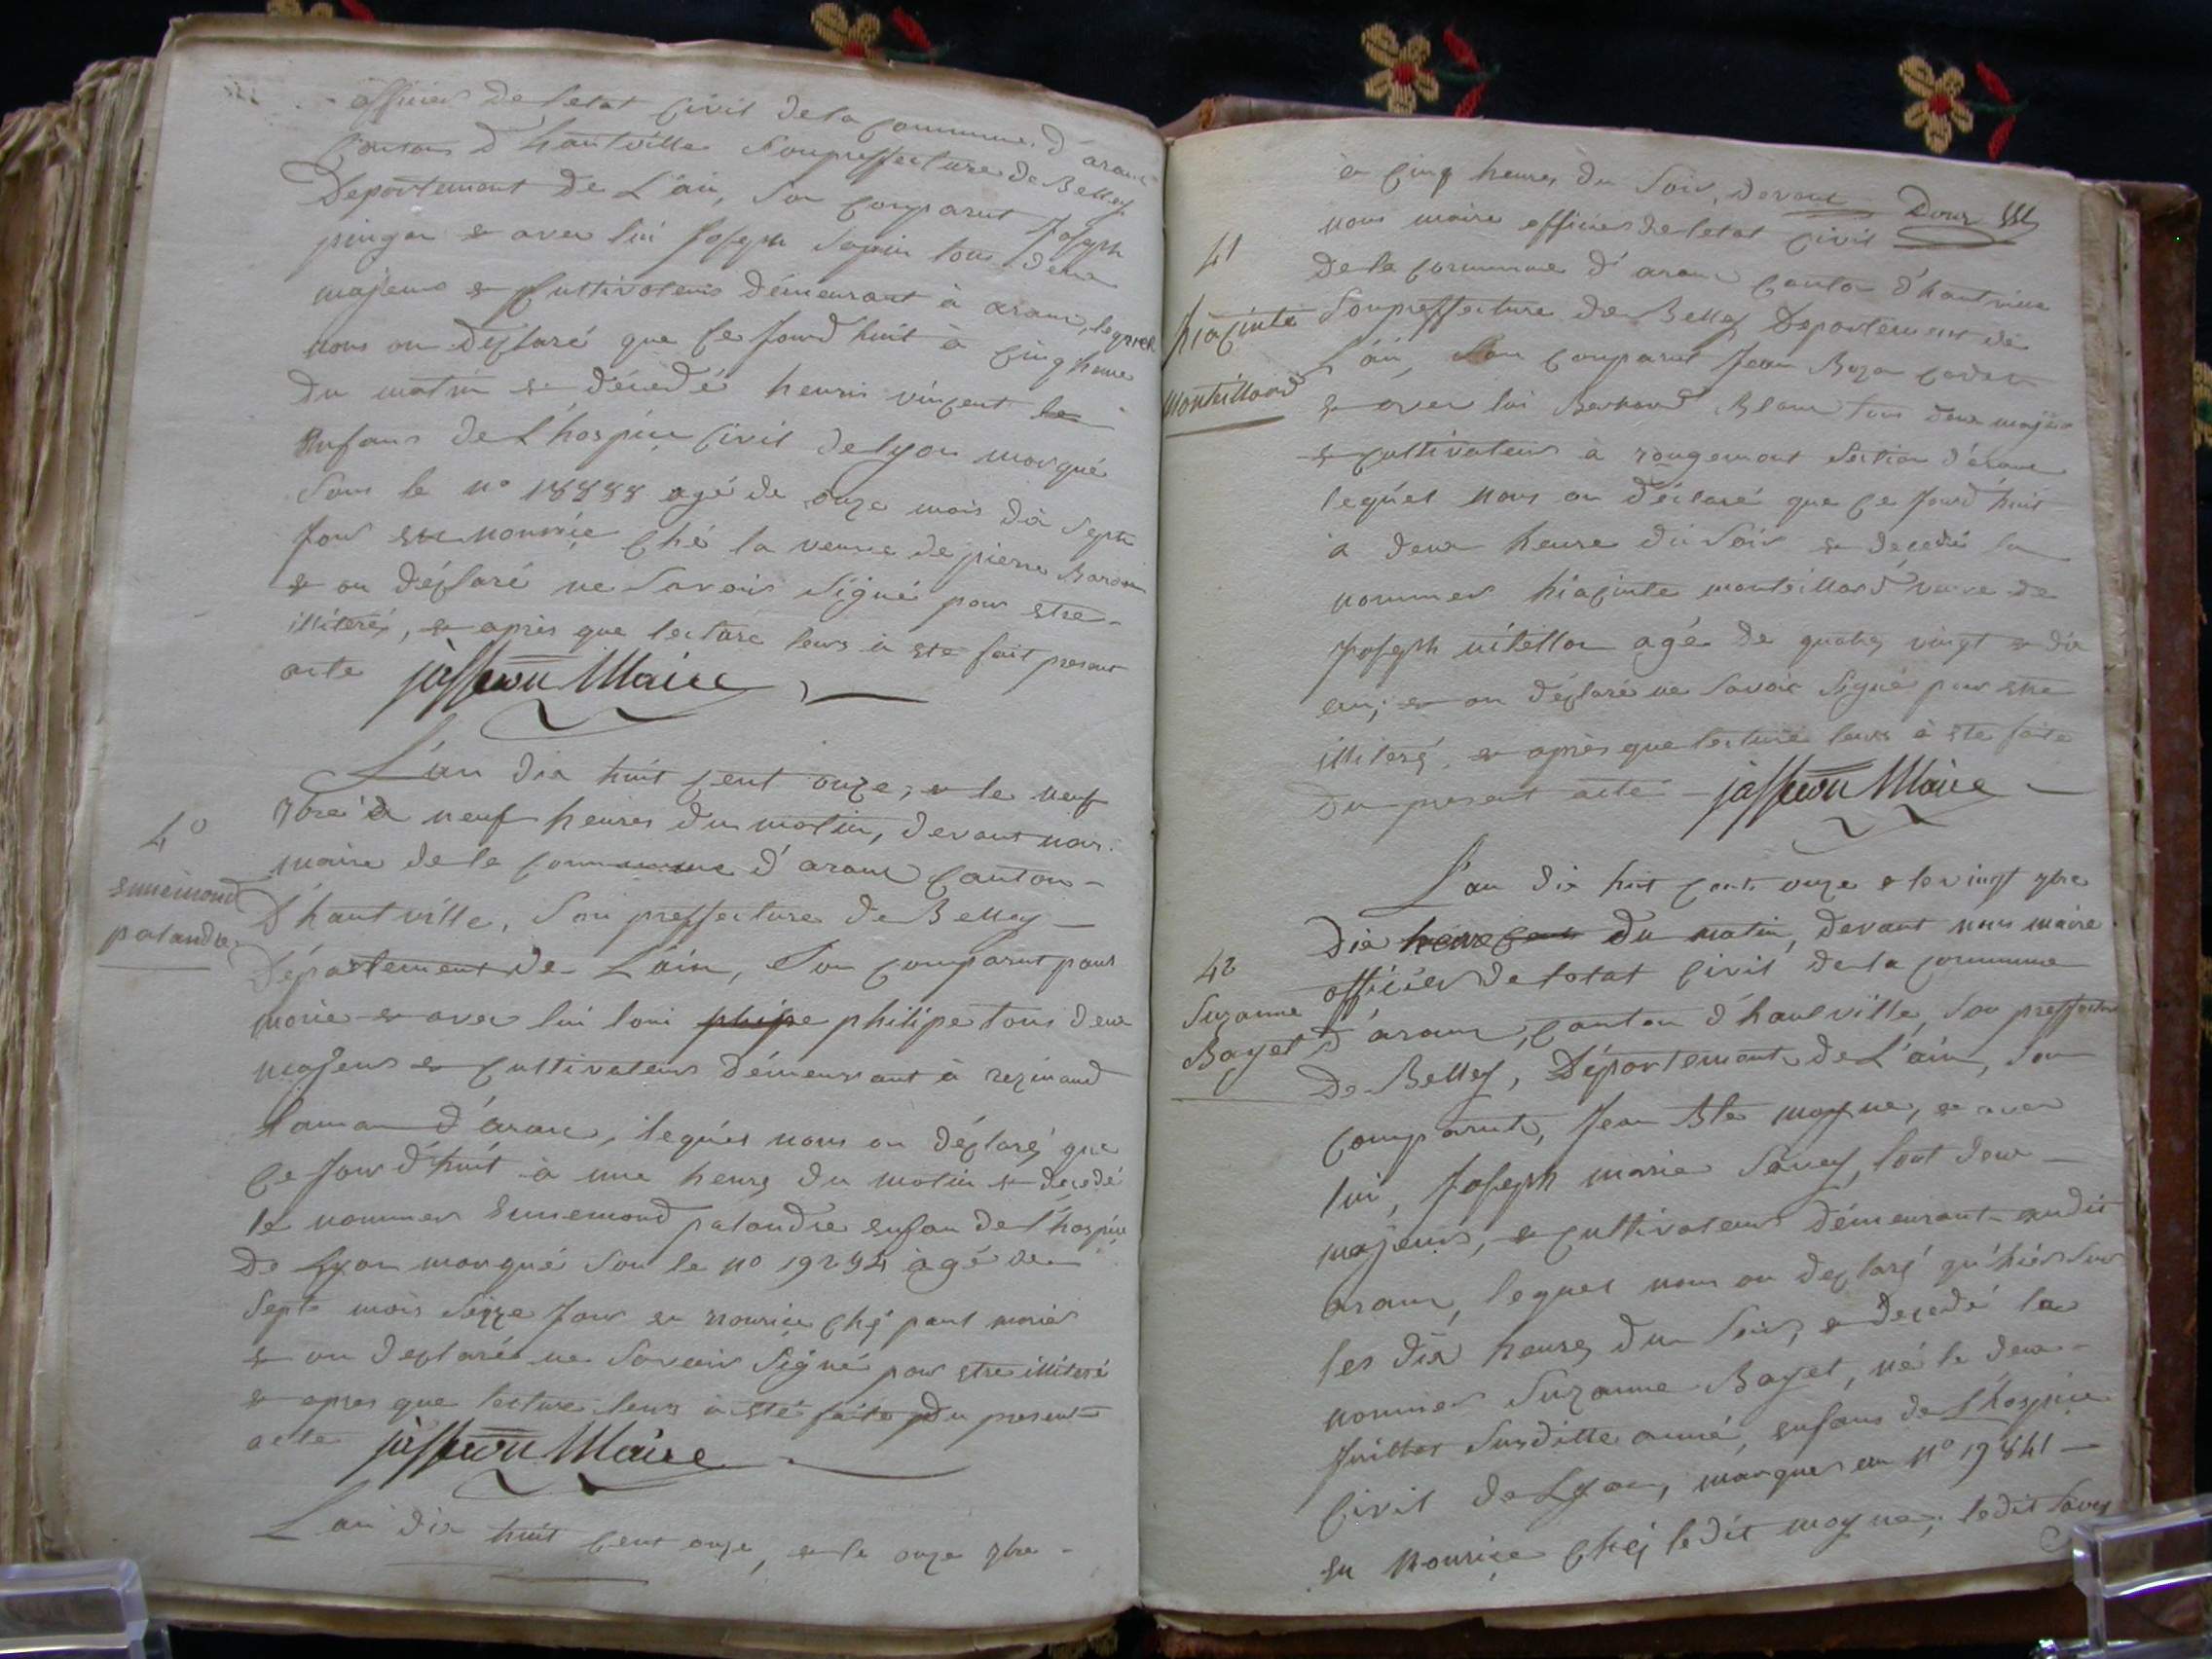 officier de letat Civil dela Commune d'aranc
Canton d'hautville Soupreffecture de Belley
Departement de L'ain, Son Comparut Joseph
pingon & avec lui Joseph Sapin tous deux
majeurs & Cultivateurs démeurant à aranc, lequel
nous on déclaré que Ce Jourd huit à Cinq heure
du matin & décedé henris vincent le
Enfans de L'hospice Civil de lyon marqué
Sous le n° 18888 agé de onze mois dix Septe
Jour en nourrice Ché la veuve de pierre
& on déclaré ne Savoir Signé pour etre
illiteré, & aprés que lecture leurs à ete fait present
acte jasseron Maire
L'an dix huit Cent onze, & le neuf
7bre à neuf heures du matin, devant nous
40
ennemond
palandre
maire de la Commune d'aranc Canton
d'hautville, Sou preffecture de Belley
Département de L'ain, Son Comparut paul
morie & avec lui loui phipe philipe tous deux
majeurs & Cultivateurs démeurant à rezinand
d'aranc, lequel nous on déclaré que
Ce Jourd'huit à une heure du matin & decedé
le nommer Ennemond palandre enfan de l'hospice
de Lyon marqué Sou le n° 19294 agé de
Septe mois Seizze Jour en nourice Ché paul morier
& on declaré ne Savoir Signé pour etre illiteré
& apres que lecture leurs à eté faite du present
acte jasseron Maire
L'an dix huit Cent onze, & le onze 7bre
à Cinq heures du Soir, devant Douz
nous maire officier de letat Civil
41
hiacinte
Monteillard
de la Commune d'aranc Canton d'hautville
Soupreffecture de Belley Departement de
L'ain, Son Comparut Jean Bozon
& avec lui Bernard Blanc tous deux majeur
& Cultivateurs à rougemont Section d'aranc
lequel nous on déclaré que Ce Jourd'huit
à deux heure du Soir & decedé la
nommer hiacinte monteillard veuve de
Joseph vitellon agé de quatre vingt & dix
an, & on déclaré ne Savoir Signé pour etre
illiteré, & aprés que lecture leurs à ete faite
Du present acte jasseron Maire
L'an dix huit Cent onze & le vingt 7bre
Dix heure du matin, devant nous maire
42
Suzanne
Bayet
officier de letat Civil de la Commune
d'aranc, Canton d'hautville, Sou preffecture
De Belley, Département de L'ain, Son
Comparut, Jean Bte moyne, & avec
lui, Joseph marie Savey, tout deux
majeurs, & Cultivateurs démeurant audit
aranc, lequel nous on declaré qu'hier Sur
les dix heures du Soir, & decedé la
nommer Suzanne Bayet, né le deux
Juillet Susditte anné, enfans de L'hospice
Civil de Lyon, marquer au n° 19841
en Nourice Chéz ledit moyne, ledit Savey